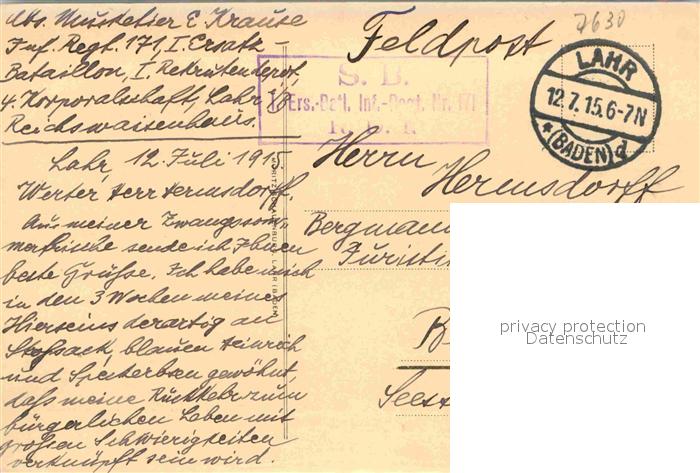 Abs. Musketier E Krause
Inf. Regt. 171, I. Ersatz-
Bataillon, I. Rekrutendepot,
4. Korporalschaft, Lahr i/B
Reichswaisenhaus.
Lahr, 12. Juli 1915.
Werter Herr Hermsdorff,
Aus meiner Zwangssom-
merfrische sende ich Ihnen
beste Grüsse. Ich habe mich
in den 3 Wochen meines
Hierseins derartig an
Strohsack, blauen Heinrich
und Speckerbsen gewöhnt,
daß meine Rückkehr zum
bürgerlichen Leben mit
großen Schwierigkeiten
verknüpft sein wird.
Feldpost
7630
S. B.
Ers.-Batl. Inf.-Regt. Nr. 171
LAHR
12.7.15.6-7N
*(BADEN)d
Herrn
Hermsdorff
Bergmann
B
Seest
privacy protection
Datenschutz